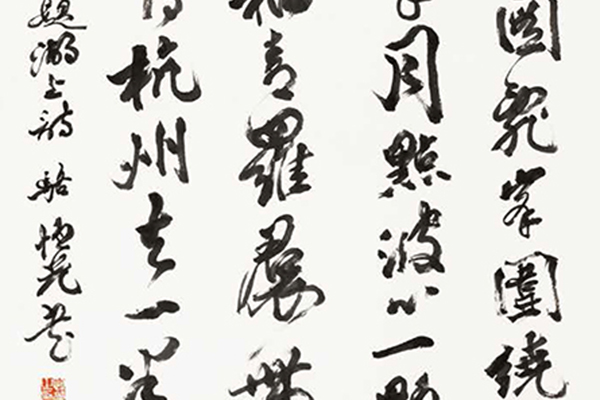 圖亂峯圍繞
月點波心一顆
稻青羅裠帶
得杭州去一半
題湖上詩 駱恒光書